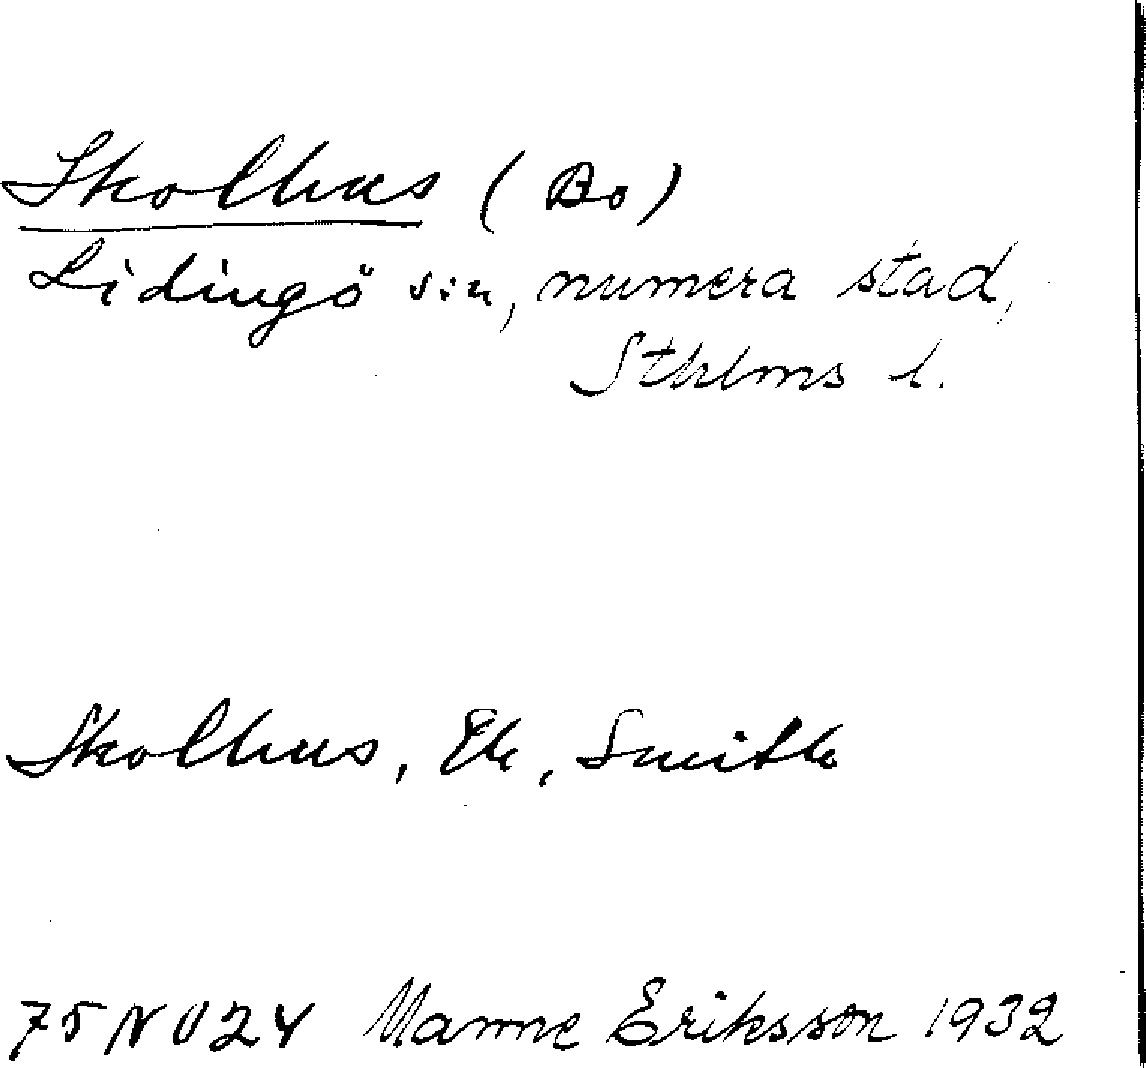 Skolhus (Bo)
Lidingö sn, numera stad,
Sthlms l.
Skolhus, Ek, Smith
75NO24 Manne Eriksson 1932